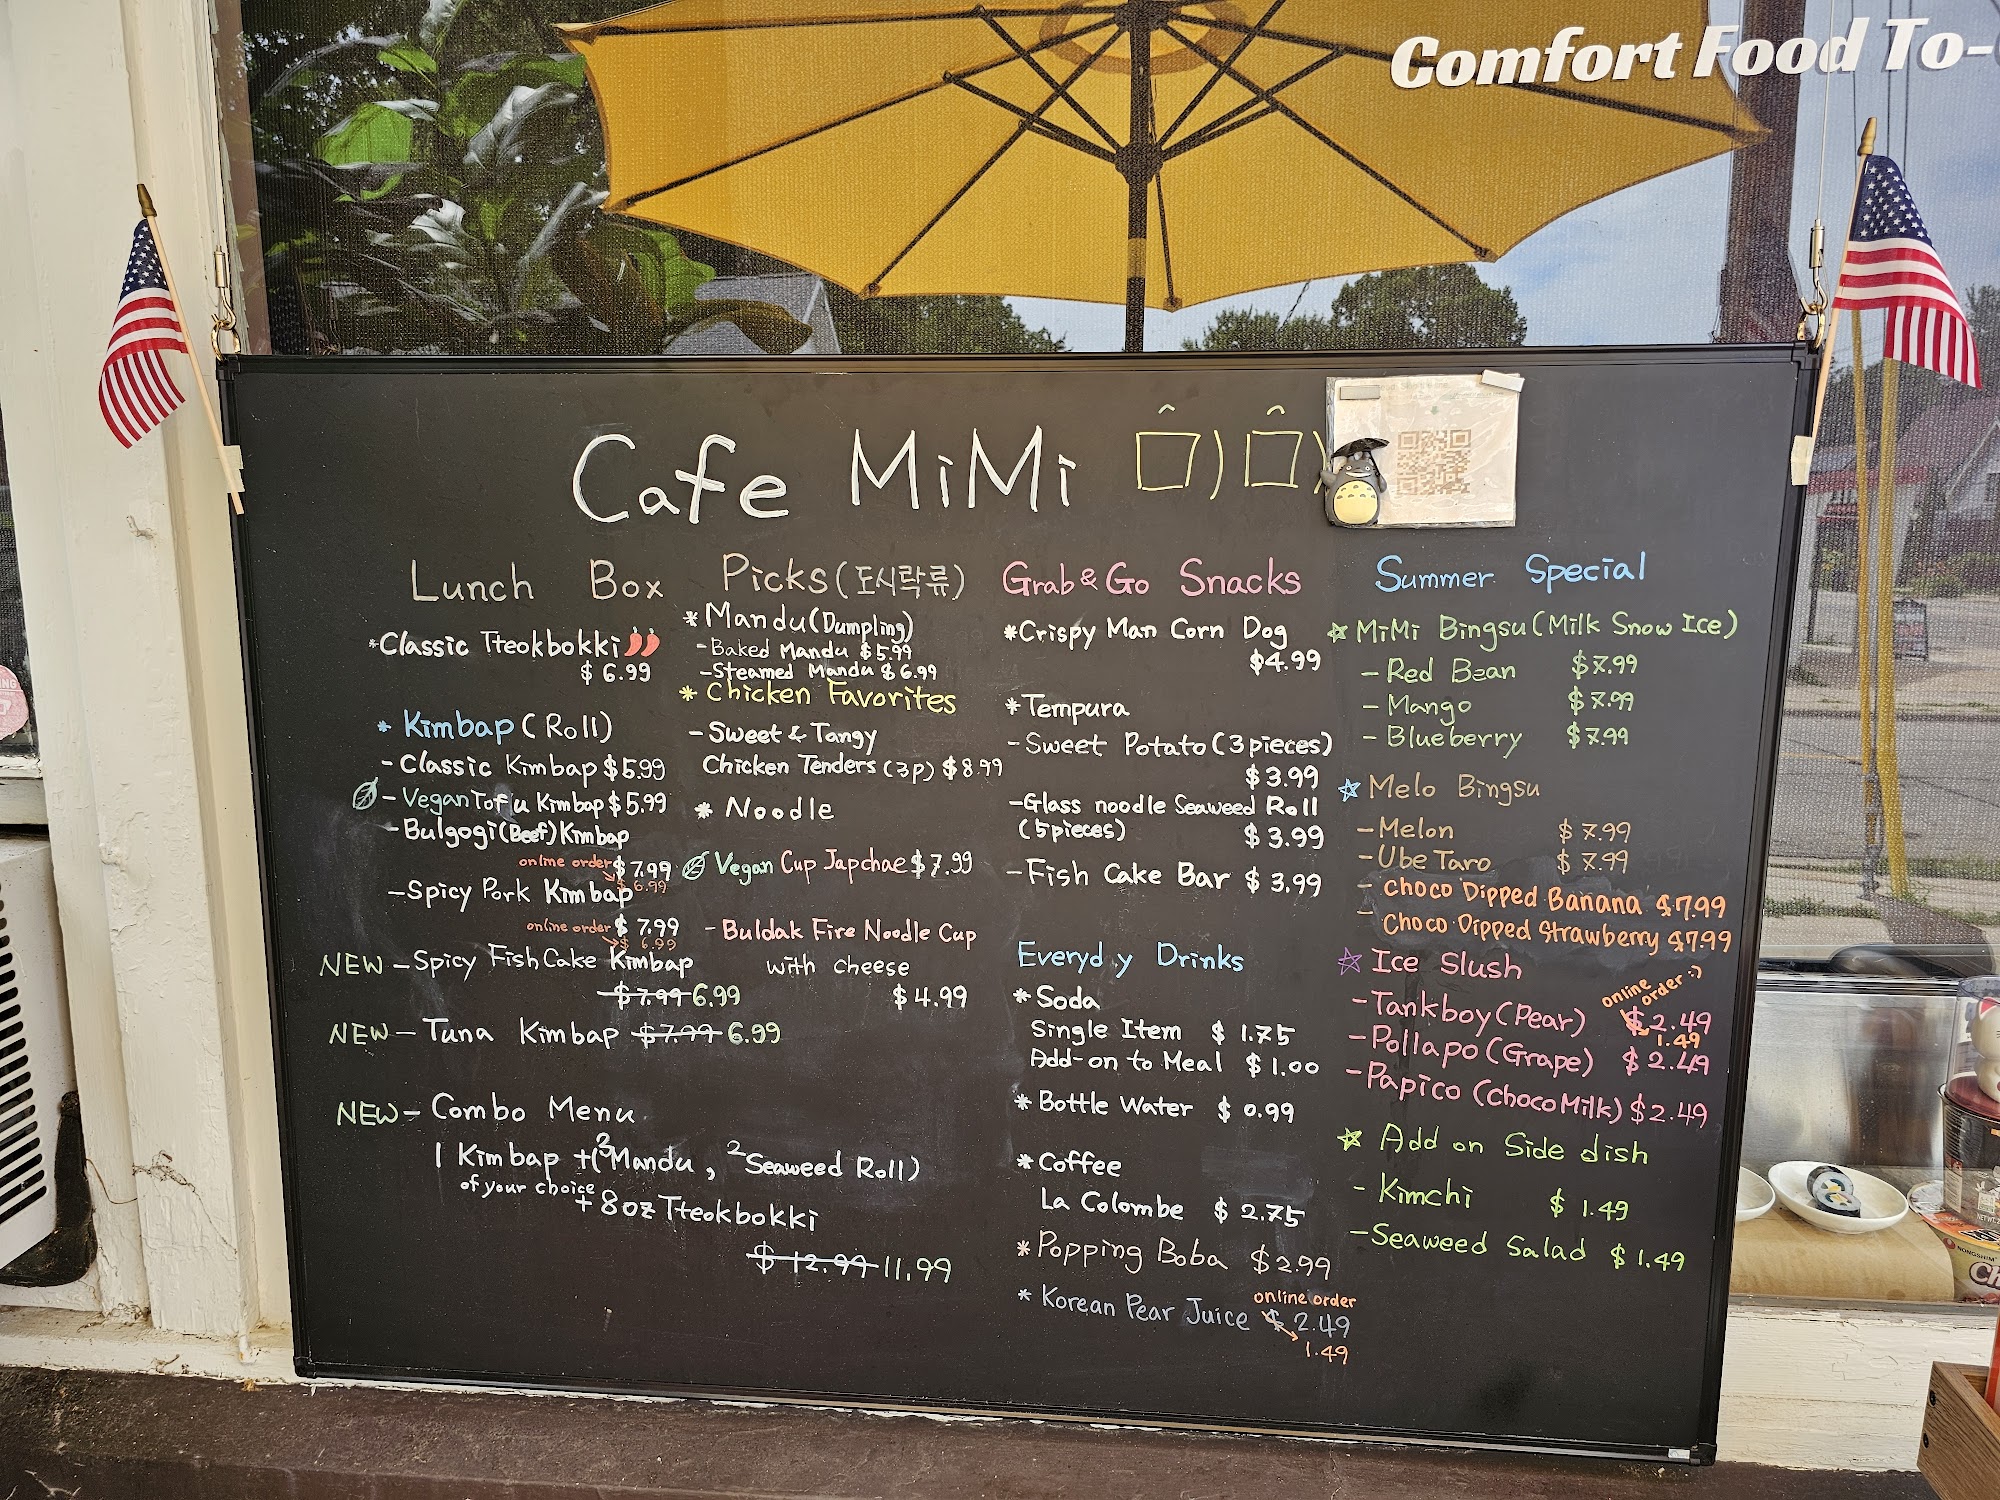 Comfort Food To-
Cafe MiMi
Lunch Box Picks (도시락류)
*Classic Tteokbokki
$ 6.99
* Kimbap (Roll)
- Classic Kimbap $5.99
- Vegan Tofu Kimbap $5.99
- Bulgogi (Beef) Kimbap
online order $7.99
$ 6.99
- Spicy Pork Kimbap
online order $ 7.99
$ 6.99
NEW - Spicy Fish Cake Kimbap
$7.99 6.99
NEW - Tuna Kimbap $7.99 6.99
NEW - Combo Menu
1 Kimbap + (3 Mandu, 2 Seaweed Roll)
of your choice
+ 8oz Tteokbokki
$ 12.99 11.99
* Mandu (Dumpling)
- Baked Mandu $5.99
- Steamed Mandu $6.99
* Chicken Favorites
- Sweet & Tangy
Chicken Tenders (3p) $8.99
* Noodle
Vegan Cup Japchae $7.99
- Buldak Fire Noodle Cup
with cheese
$ 4.99
Grab & Go Snacks
*Crispy Man Corn Dog
$4.99
*Tempura
- Sweet Potato (3 pieces)
$3.99
- Glass noodle Seaweed Roll
(5 pieces) $3.99
- Fish Cake Bar $3.99
Everyd y Drinks
* Soda
Single Item $ 1.75
Add-on to Meal $ 1.00
* Bottle Water $ 0.99
* Coffee
La Colombe $ 2.75
* Popping Boba $2.99
* Korean Pear Juice $2.49
online order
1.49
Summer Special
☆ MiMi Bingsu (Milk Snow Ice)
- Red Bean $7.99
- Mango $7.99
- Blueberry $7.99
☆ Melo Bingsu
- Melon $7.99
- Ube Taro $7.99
- Choco Dipped Banana $7.99
- Choco Dipped Strawberry $7.99
☆ Ice Slush
online order :)
- Tankboy (Pear) $2.49
1.49
- Pollapo (Grape) $2.49
- Papico (Choco Milk) $2.49
☆ Add on Side dish
- Kimchi $ 1.49
- Seaweed Salad $ 1.49
NONGSHIM